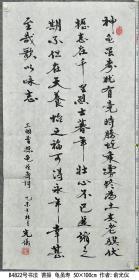 神龟虽寿犹有竟時騰蛇乘雾终为土灰老骥伏
枥志在千里烈士暮年壮心不已盈缩之
期不但在天养怡之福可得永年幸甚
至哉歌以咏志
三国曹操龟虽寿诗 乙未
B4822号书法 曹操 龟虽寿 50×100cm 作者: